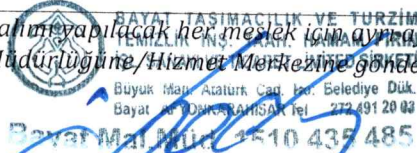 BAYAT TAŞIMACILIK VE TURZİM
alımı yapılacak her meslek için ayrı
TEMİZLİK İNŞ.
Müdürlüğüne/Hizmet Merkezine gönde
Büyük Mah. Atatürk Cad. No: Belediye Dük.
Bayat AFYONKARAHİSAR Tel 272 491 20
Bayat Mal.Müd. 1510 435 485